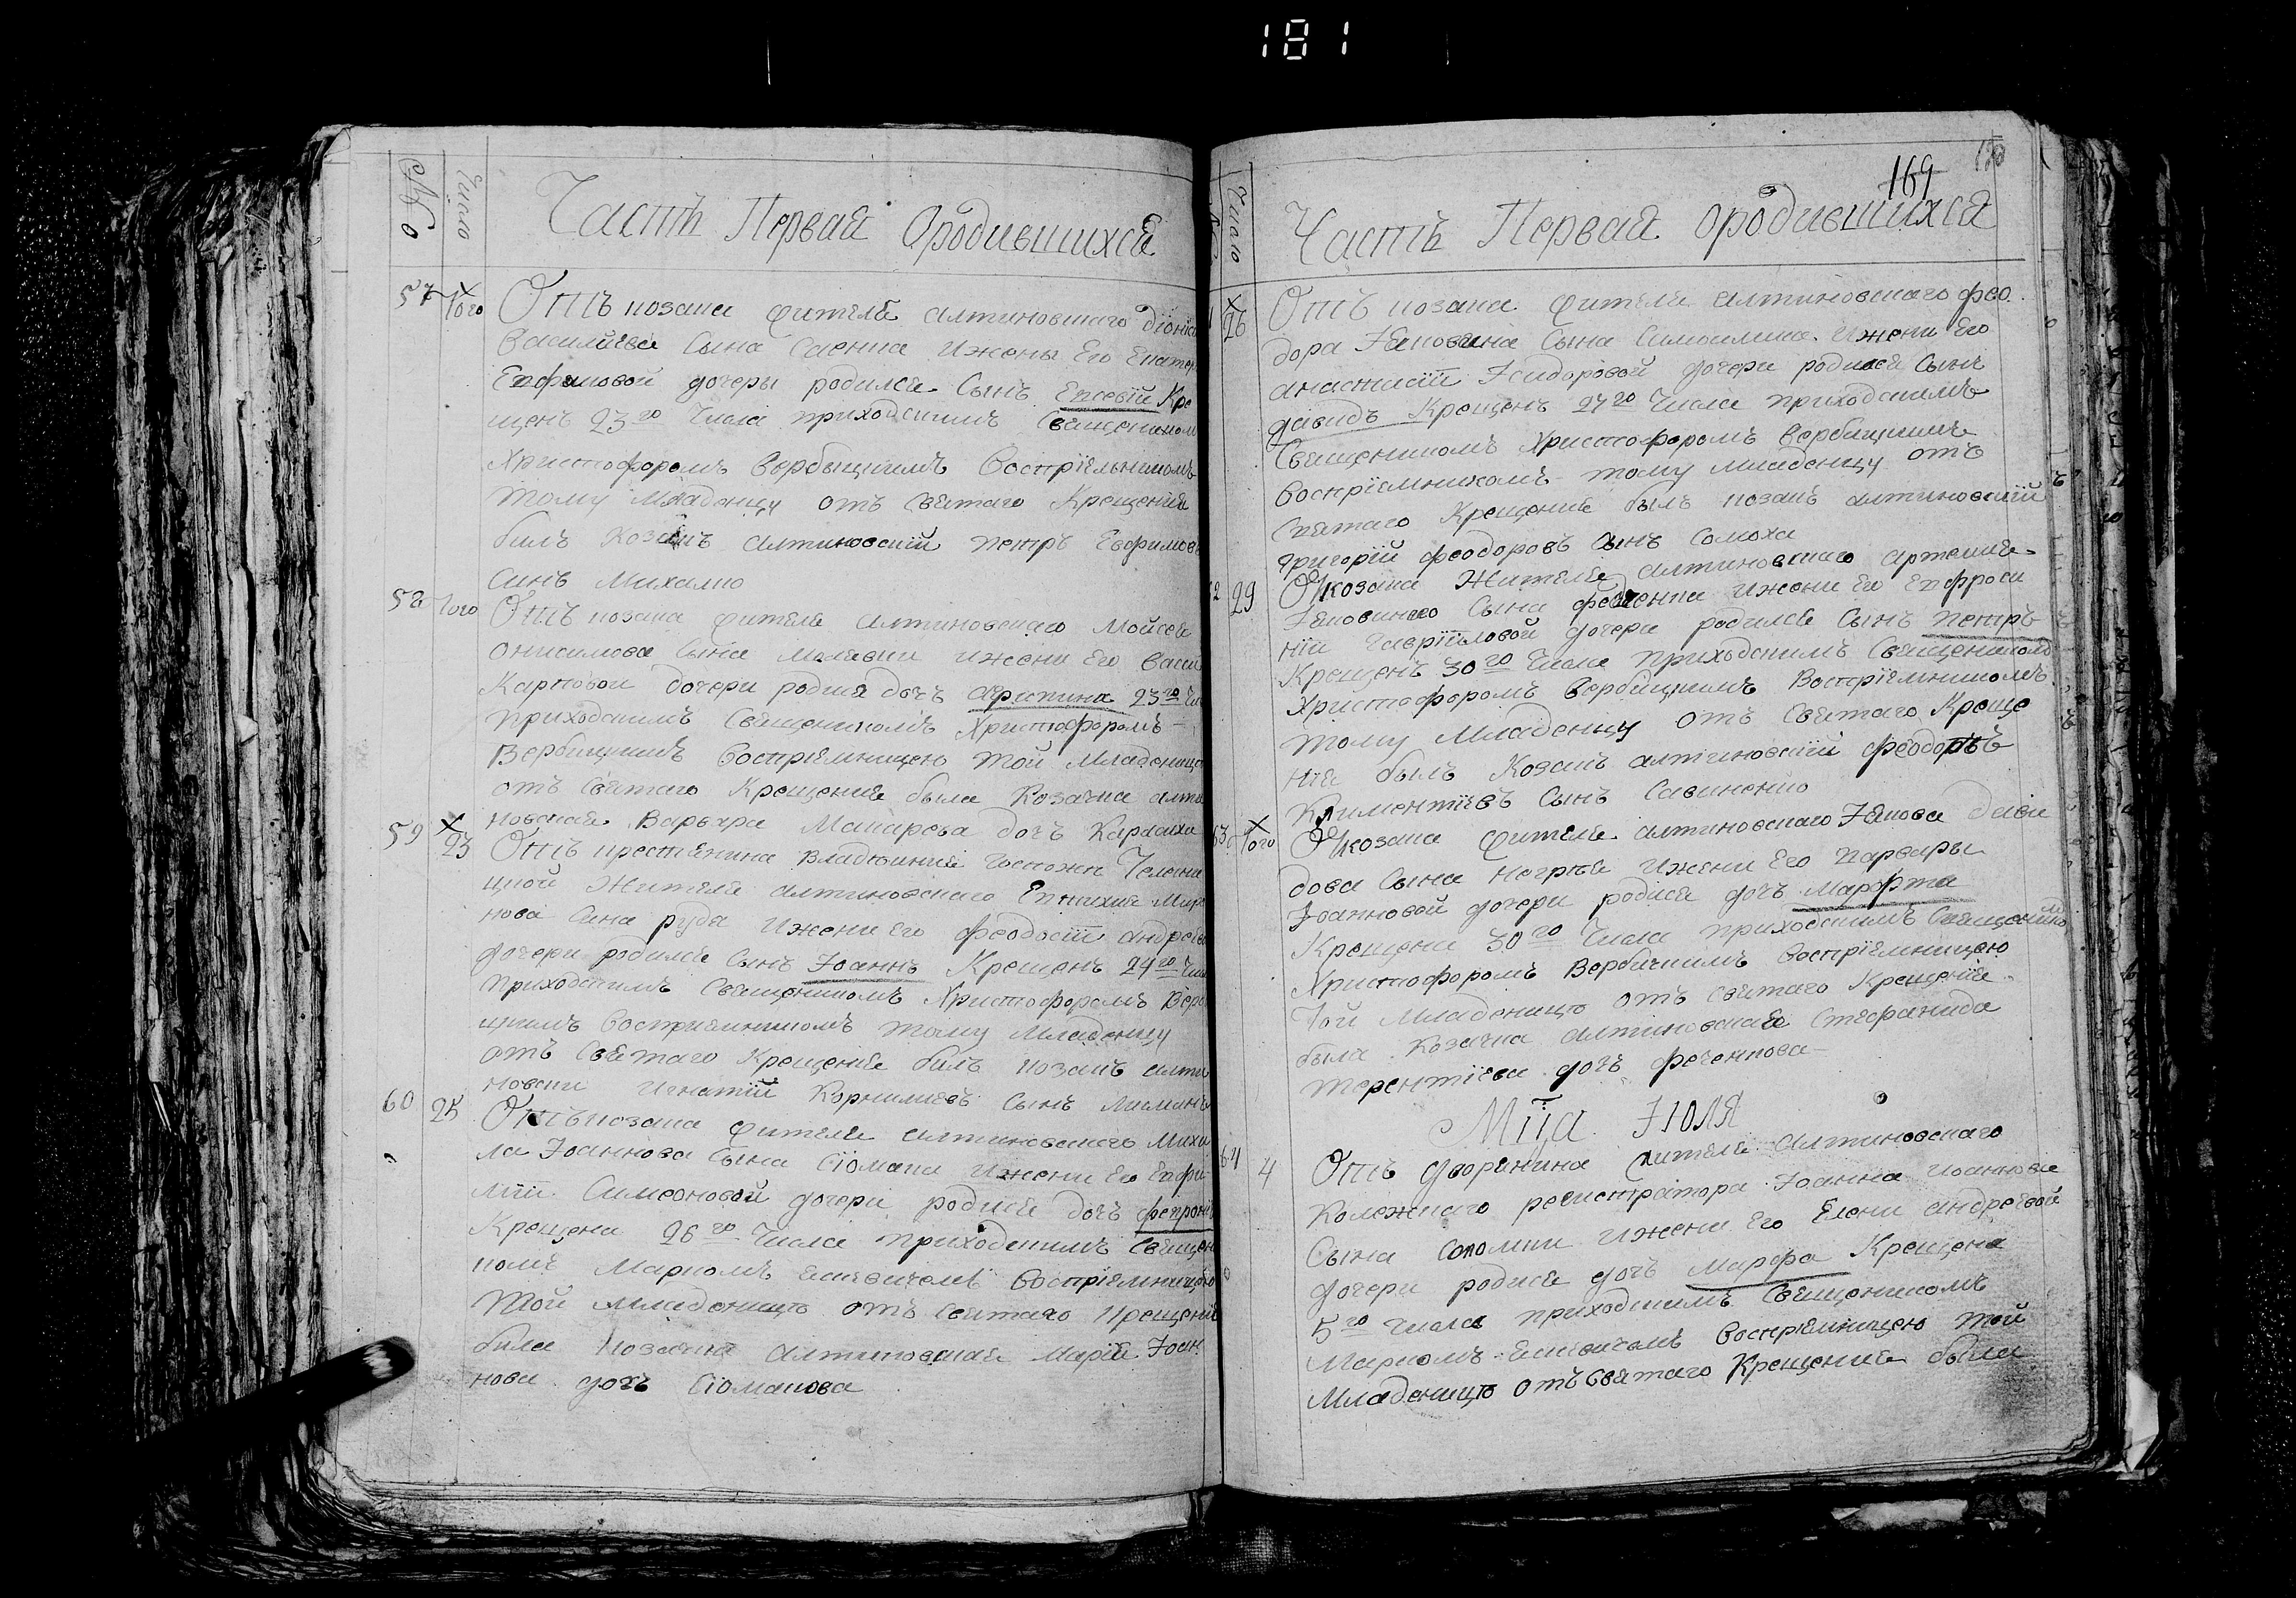 181
№
Число
Часть Первая Ородившихся
57 Того Отъ козака жителя алтиновскаго Діонис
Василіева Сына Саенка Ижены Его Екатер
дочеры родился Сынъ Евсевій Кре
щенъ 23го Числа приходскимъ Священником
Христофоромъ Вербыцкимъ Воспріемникомъ
тому Младенцу отъ Святаго Крещенія
билъ Козакъ алтиновскій Петръ Евфимовъ
Синъ Михалко
58 Того Отъ козака жителя алтиновскаго Мойсея
Онисимова Сына Малявки Ижени Его Васи
Карповой дочери родися дочъ агрипина 23го Чи
приходскимъ Священикомъ Христофоромъ
Вербицкимъ Воспріемницею той Младеницѣ
отъ Святаго Крещенія была Козачка алти
новская Варвара Макарова дочъ
59 23 Отъ крестянина владѣнія Госпожи
цкой Жителя алтиновскаго Миро
нова Сина Руда Ижени Его Феодосіи андреево
дочери родился Сынъ Іоаннъ Крещенъ 24го Чи
приходскимъ Священикомъ Христофоромъ Верб
цкимъ Воспріемникомъ тому Младенцу
отъ Святаго Крещенія билъ козакъ алти
новски Игнатій Корниліевъ Сынъ
60 25 Отъ козака жителя алтиновскаго Миха
ла Іоаннова Сына Сіомака Ижени Его Евфи
міи Симеоновой дочери родися дочъ Февронія
Крещена 26го Числа приходскимъ Священ
комъ Маркомъ Воспріемницею
той Младеницѣ отъ Святаго Крещенія
била Козачка алтиновская Марія Іоан
нова дочъ Сіомакова
169
Число
Часть Первая Ородившихся
26 Отъ козака жителя алтиновскаго Фео
дора Іяковлева Сына Ижени Его
анастасіи Ісидоровой дочери родися Сынъ
Давидъ Крещенъ 27го Числа приходскимъ
Священикомъ Христофоромъ Вербицкимъ
Воспріемникомъ тому Младенцу отъ
Святаго Крещенія былъ козакъ алтиновскій
Григорій Феодоровъ Сынъ Солоха
62 29 Отъ козака Жителя алтиновскаго артемія
Сына Ижени Его Евфроси
ніи Гавріиловой дочери родился Сынъ Петръ
Крещенъ 30го Числа приходскимъ Священикомъ
Христофоромъ Вербицкимъ Воспріемникомъ
тому Младенцу отъ Святаго Креще
нія былъ Козакъ алтиновскій Феодоръ
Климентіевъ Сынъ Савиненко
63 Того Отъ козака жителя алтиновскаго Іякова Дави
дова Сына Ижени Его Варвары
Іоанновой дочери родися дочъ Марфа
Крещена 30го Числа приходскимъ Священико
Христофоромъ Вербичкимъ Воспріемницею
той Младеницѣ отъ Святаго Крещенія
была Козачка алтиновская Стефанида
Терентіева дочъ
Мца Іюля
64 4 Отъ дворянина жителя алтиновскаго
Колежнаго регистратора Іоанна Иоаннова
Сына Ижени Его Елени андреевой
дочери родися дочъ Марфа Крещена
5го Числа приходскимъ Священикомъ
Маркомъ Воспріемницею той
Младеницѣ отъ Святаго Крещения была